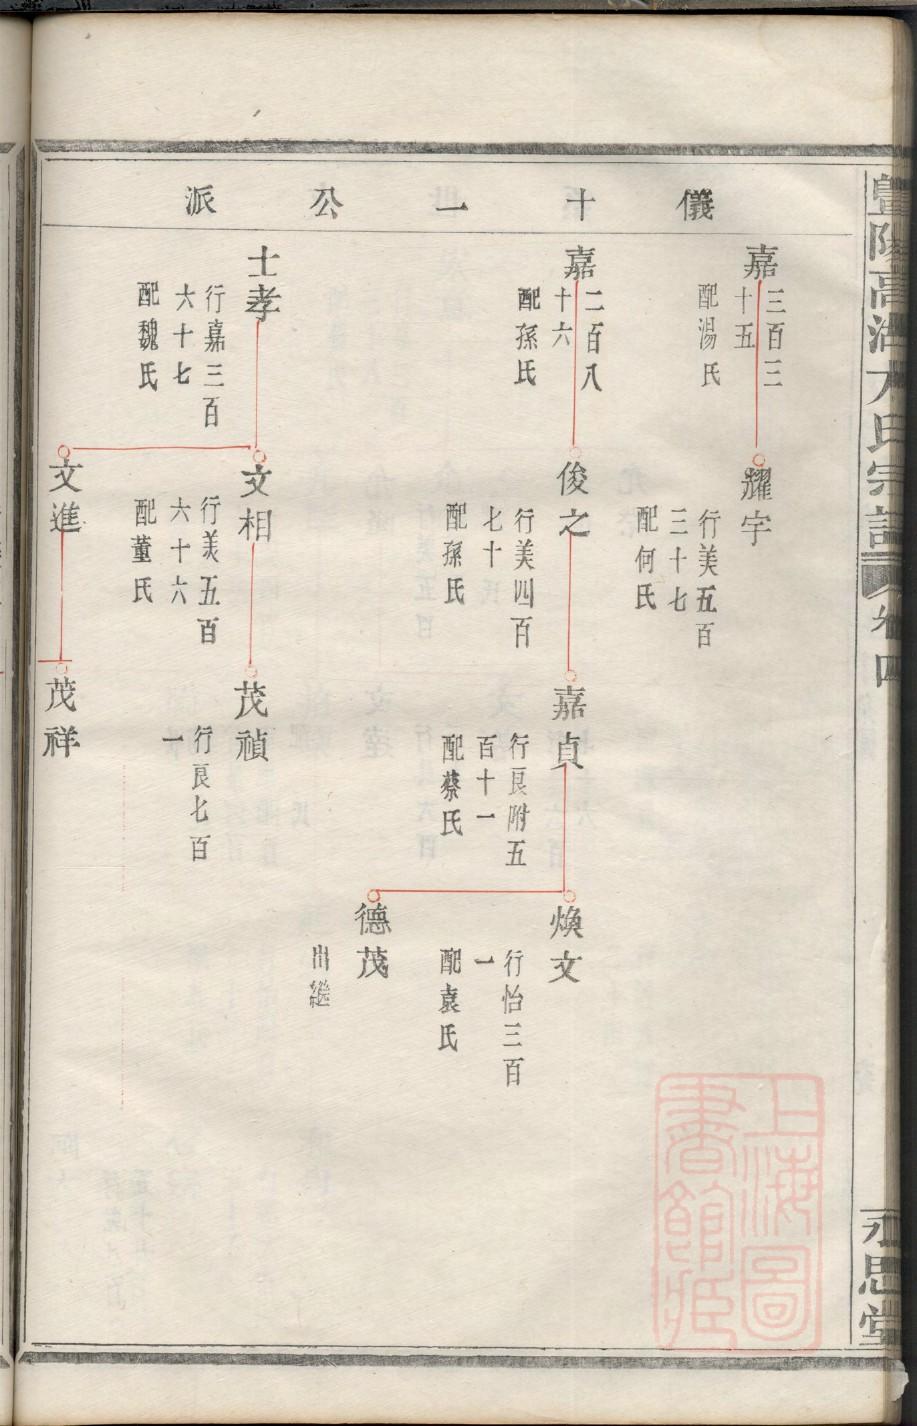 儀十一公派
嘉三百三
十五
配湯氏
耀宇
行美五百
三十七
配何氏
嘉二百八
十六
配孫氏
俊之
行美四百
七十
配孫氏
嘉貞
行良附五
百十一
配蔡氏
煥文
行怡三百
一
配袁氏
德茂
出繼
士孝
行嘉三百
六十七
配魏氏
文相
行美五百
六十六
配董氏
茂禎
行良七百
一
文進
茂祥
氏宗譜
卷四
永思堂
上海圖
書館藏